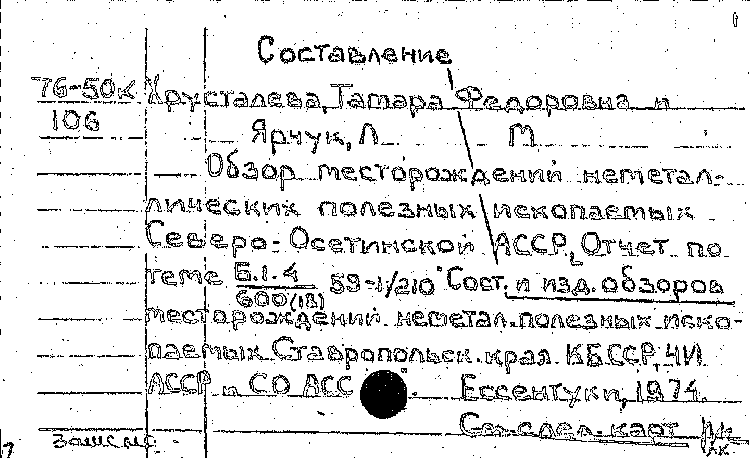 Составление
76-50к Хрусталева, Тамара Федоровна и
106 Ярчук, Л М
Обзор месторождений неметал-
лических полезных ископаемых
Северо-Осетинской АССР. Отчет по
теме Б.1.4/600(18) 59-1/210 "Сост. и изд. обзоров
месторождений неметал. полезных иско-
паемых Ставропольск. края, КБССР, ЧИ
АССР и СО АСС ". Ессентуки, 1974.
См. след. карт